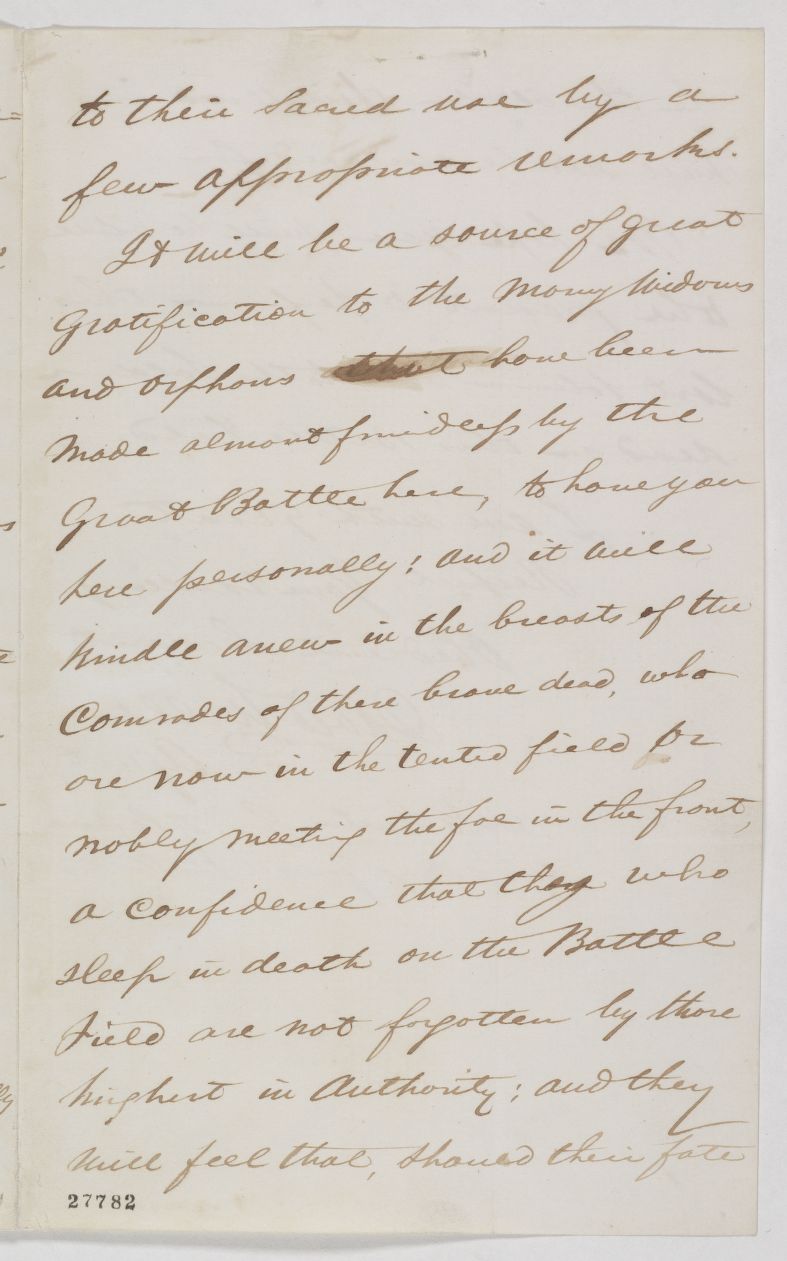 to their Sacred use by a
few appropriate remarks.
It will be a source of great
Gratification to the Many Widows
and Orphans that have been
Made almost friendless by the
Great Battle here, to have you
here personally; and it will
kindle anew in the breasts of the
Comrades of these brave dead, who
are now in the tented field or
nobly meeting the foe in the front,
a confidence that they who
sleep in death on the Battle
Field are not forgotten by those
highest in Authority; and they
will feel that, should their fate
27782